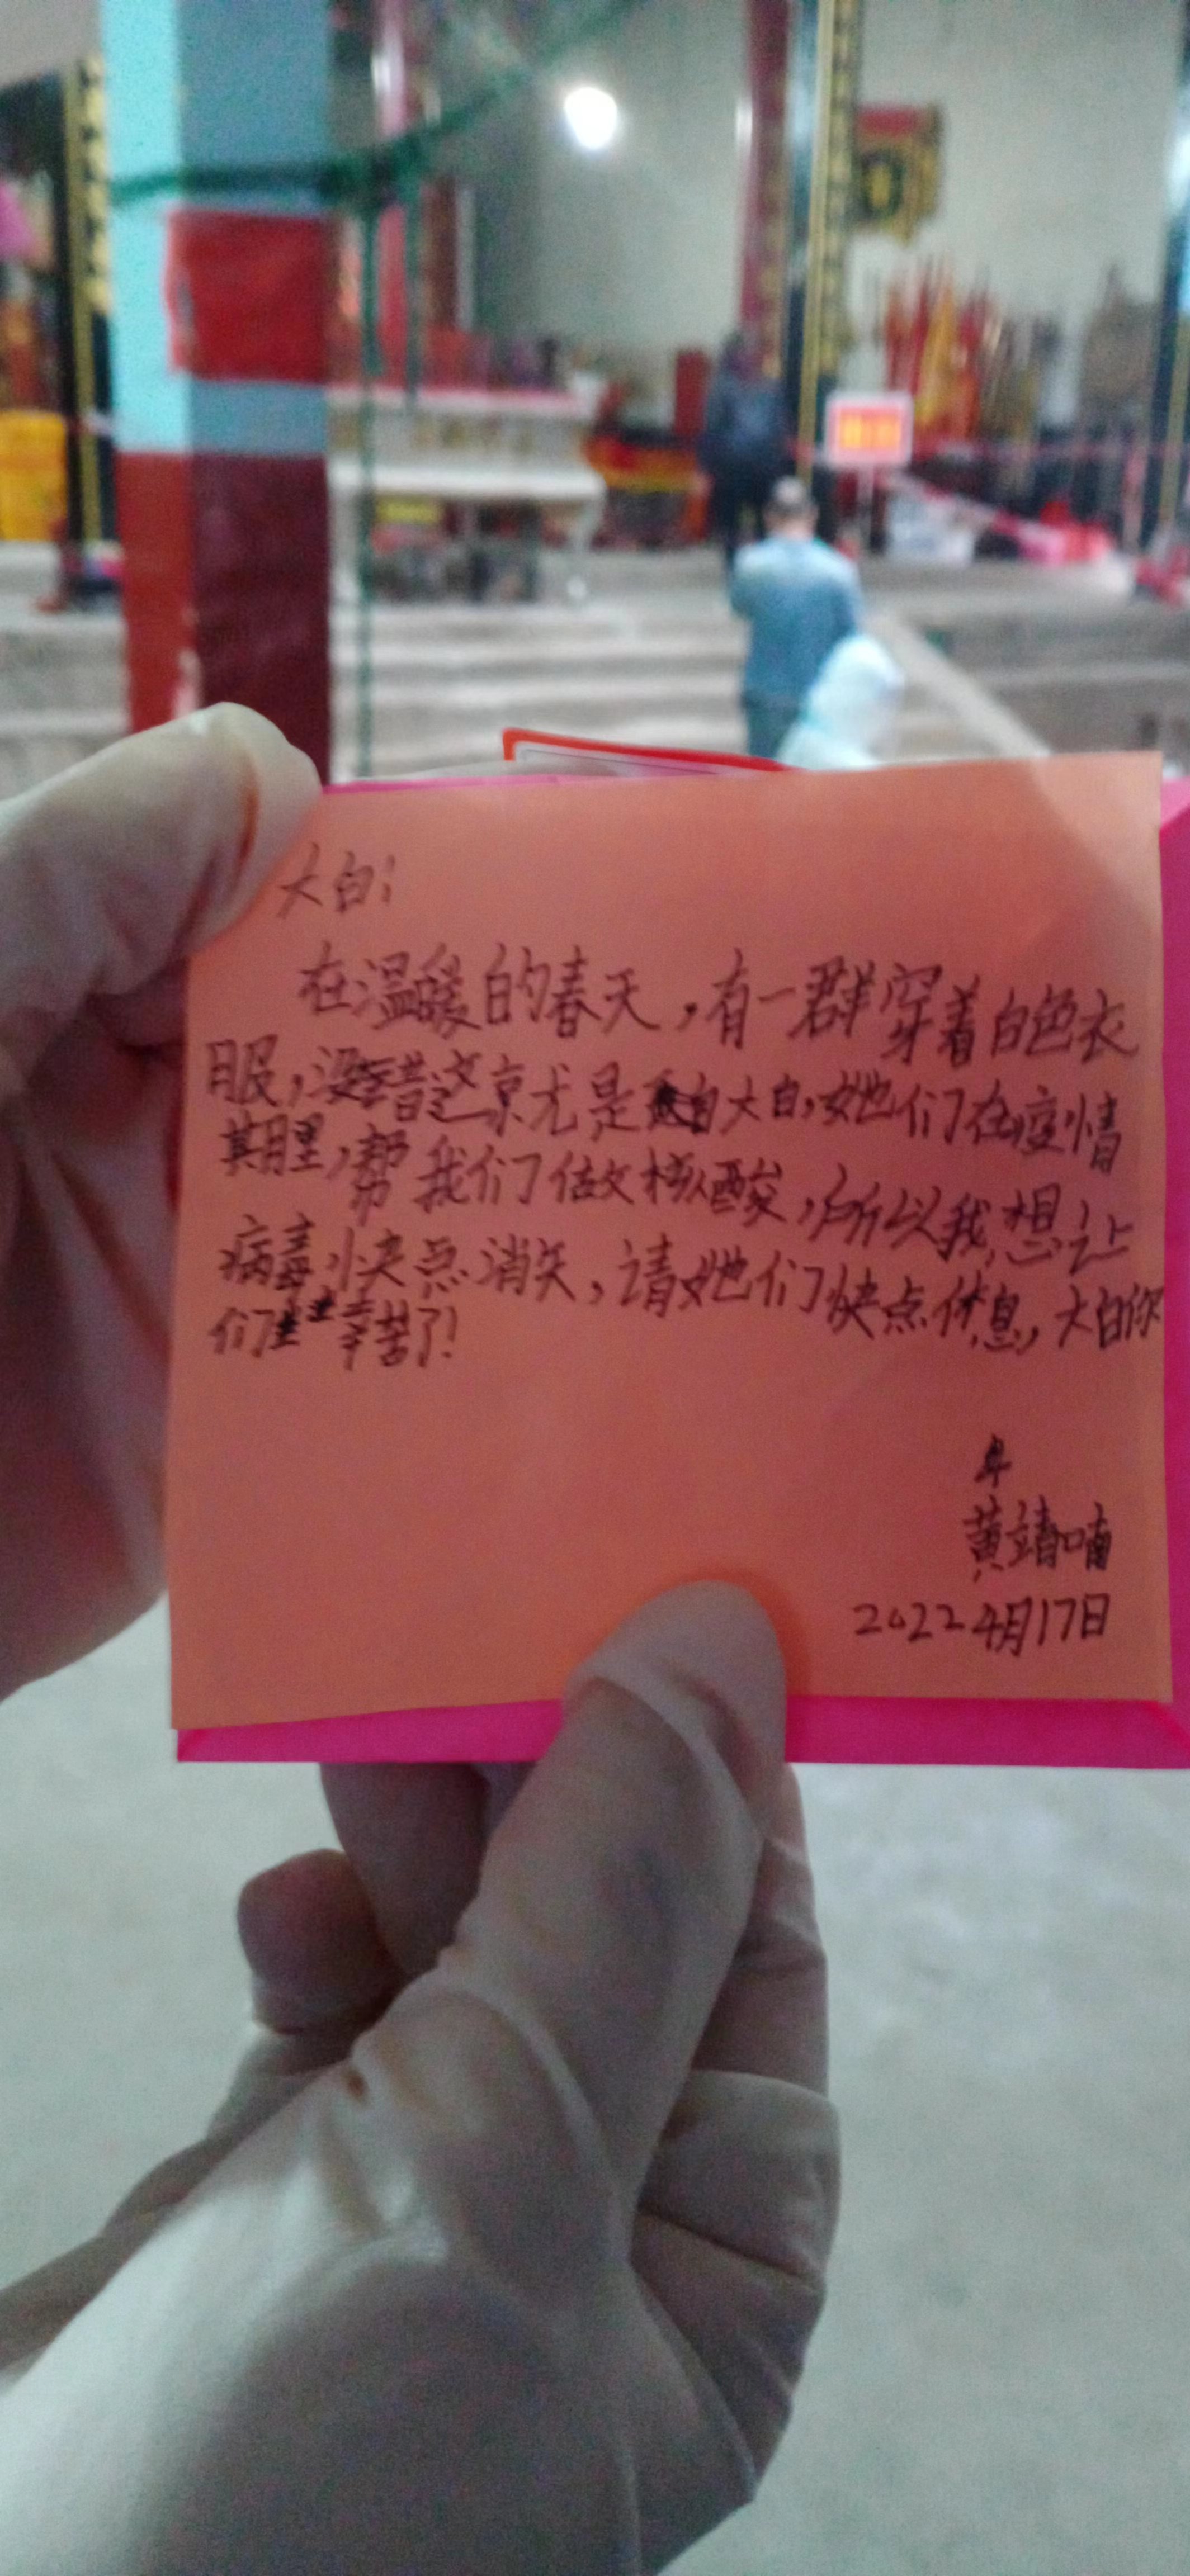 大白：
在温暖的春天，有一群穿着白色衣
服，没错这就是大白，她们在疫情
期里，帮我们做核酸，所以我想让
病毒快点消失，请她们快点休息，大白你
们辛苦了！
黄靖喃
2022 4月17日